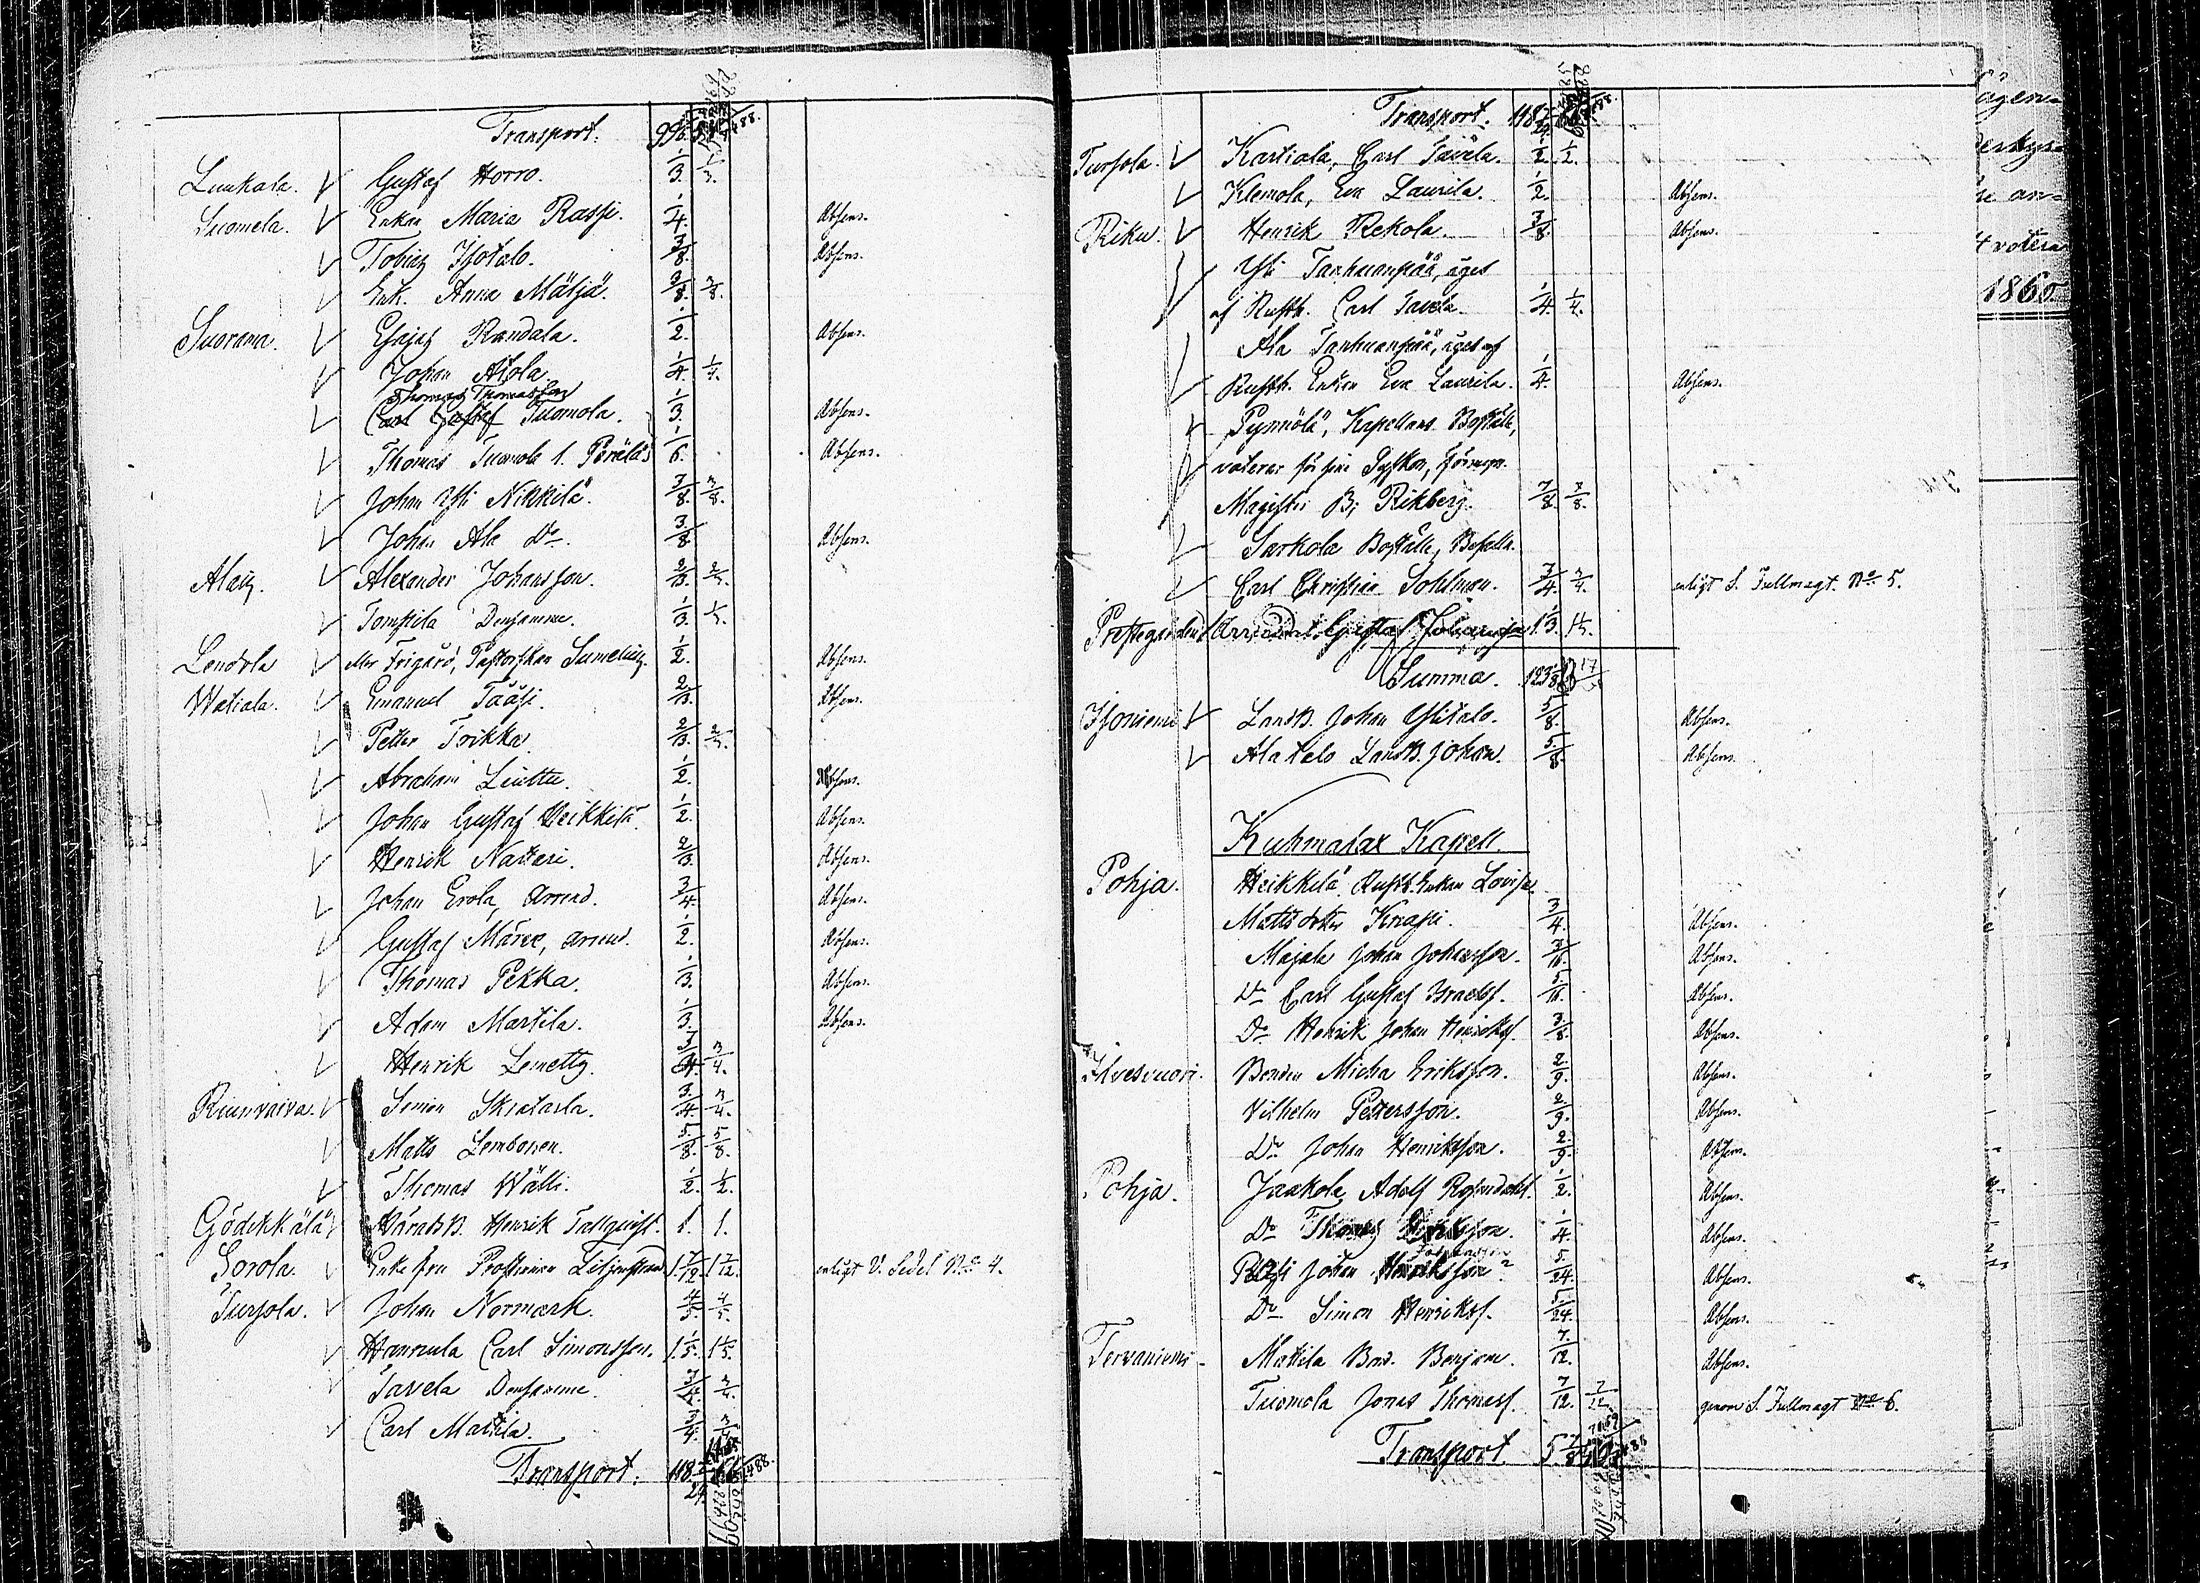 Transport.
Luukala. Gustaf Horro. 1/3. 1/3.
Suomela. Enkan Maria Rassi. 1/4. Absens.
Tobias Isotalo. 3/8. Absens.
Enk. Anna Mätjä. 3/8. 3/8.
Suorama. Esajas Randala. 1/2. Absens.
Johan Alola 1/4. 1/4.
Thomas Thomasson
Carl Gustaf Tuomola. 1/3. Absens.
Thomas Tuomola l. Perälä 1/6. Absens.
Johan Yli Nikkilä. 3/8. 3/8.
Johan Ala Do. 3/8. Absens.
Alais. Alexander Johansson. 2/3. 2/3.
Tompila Densamme. 1/3. 1/3.
Lendola Pastorskan Sumelius. 1/2. Absens.
Watiala. Emanuel Tääsi. 2/3. Absens.
Petter Trikka. 2/3. 2/3.
Abraham Liuttu. 1/2. Absens.
Johan Gustaf Heikkilä. 1/2. Absens.
Henrik Nattari. 2/3. Absens.
Johan Erola, arrend. 3/4. Absens.
Gustaf arrend. 1/2. Absens.
Thomas Pekka. 1/3. Absens.
Adam Martila. 1/3. Absens.
Henrik Lemetty. 3/4. 3/4.
Riunvaiva. Simon Skratarla. 3/4. 3/4.
Matts Lembonen. 5/8. 5/8.
Thomas Wälli. 1/2. 1/2.
Gödekkälä Häradsh. Henrik Tallquist. 1. 1.
Sorola. Enke fru Prostinnan 1 7/12. 1 7/12. enligt V. Sedel No 4.
Tursola. Johan Normark. 4/5. 4/5.
Hannula Carl Simonsson. 1 1/5. 1 1/5.
Tavela Densamme. 3/4. 3/4.
Carl Mattila. 3/4. 3/4.
Transport. 118 7/24.
Transport. 118 7/24.
Tursola. Kartiala, Carl Tavela. 1/2. 1/2.
Klemola, Eva Laurila. 1/2. Absens.
Riku. Henrik Rekola. 3/8. Absens.
Yli Tanhuanpää, äges
af Rusth. Carl Tavela. 1/4. 1/4.
Ala Tanhuanpää, äges af
Rusth. Enkan Eva Laurila. 1/4. Absens.
Pynnölä, Kapellans Boställe,
voterar för sine Pysslon,
Magister B; Rikberg. 7/8. 7/8.
Sarkola Boställe, Befalln.
Carl Christian Sohlman. 3/4. 3/4. enligt S. Fullmagt. No 5.
Prestegården Gustaf 1 1/3. 1 1/3.
Summa. 123
Isoniemi Landb. Johan Ylitalo. 5/8. Absens.
Alatalo Landb. Johan. 5/8. Absens.
Kuhmalax Kapell.
Pohja. Heikkilä. Rusth. Enkan Lovisa
Mattsdotter Knapi. 3/4. Absens.
Majala Johan Johansson. 3/16. Absens.
Do Carl Gustaf Israelss. 5/16. Absens.
Do Henrik Johan Henrikss. 3/8. Absens.
Ilvesvuori. Bonden Micha Eriksson. 2/9. Absens.
Vilhelm Pettersson. 2/9. Absens.
Do Johan Henriksson. 2/9. Absens.
Pohja. Jaakola Adolf Rosendahl. 1/2. Absens.
Do Thomas Eriksson. 1/4. Absens.
Passi Johan Henriksson 5/24. Absens.
Do Simon Henrikss. 5/24. Absens.
Tervaniemi Mattila Bnd. Benjam. 7/12. Absens.
Tuomola Jonas Thomass. 7/12. 7/12. genom S. Fullmagt No 6.
Transport.
1860